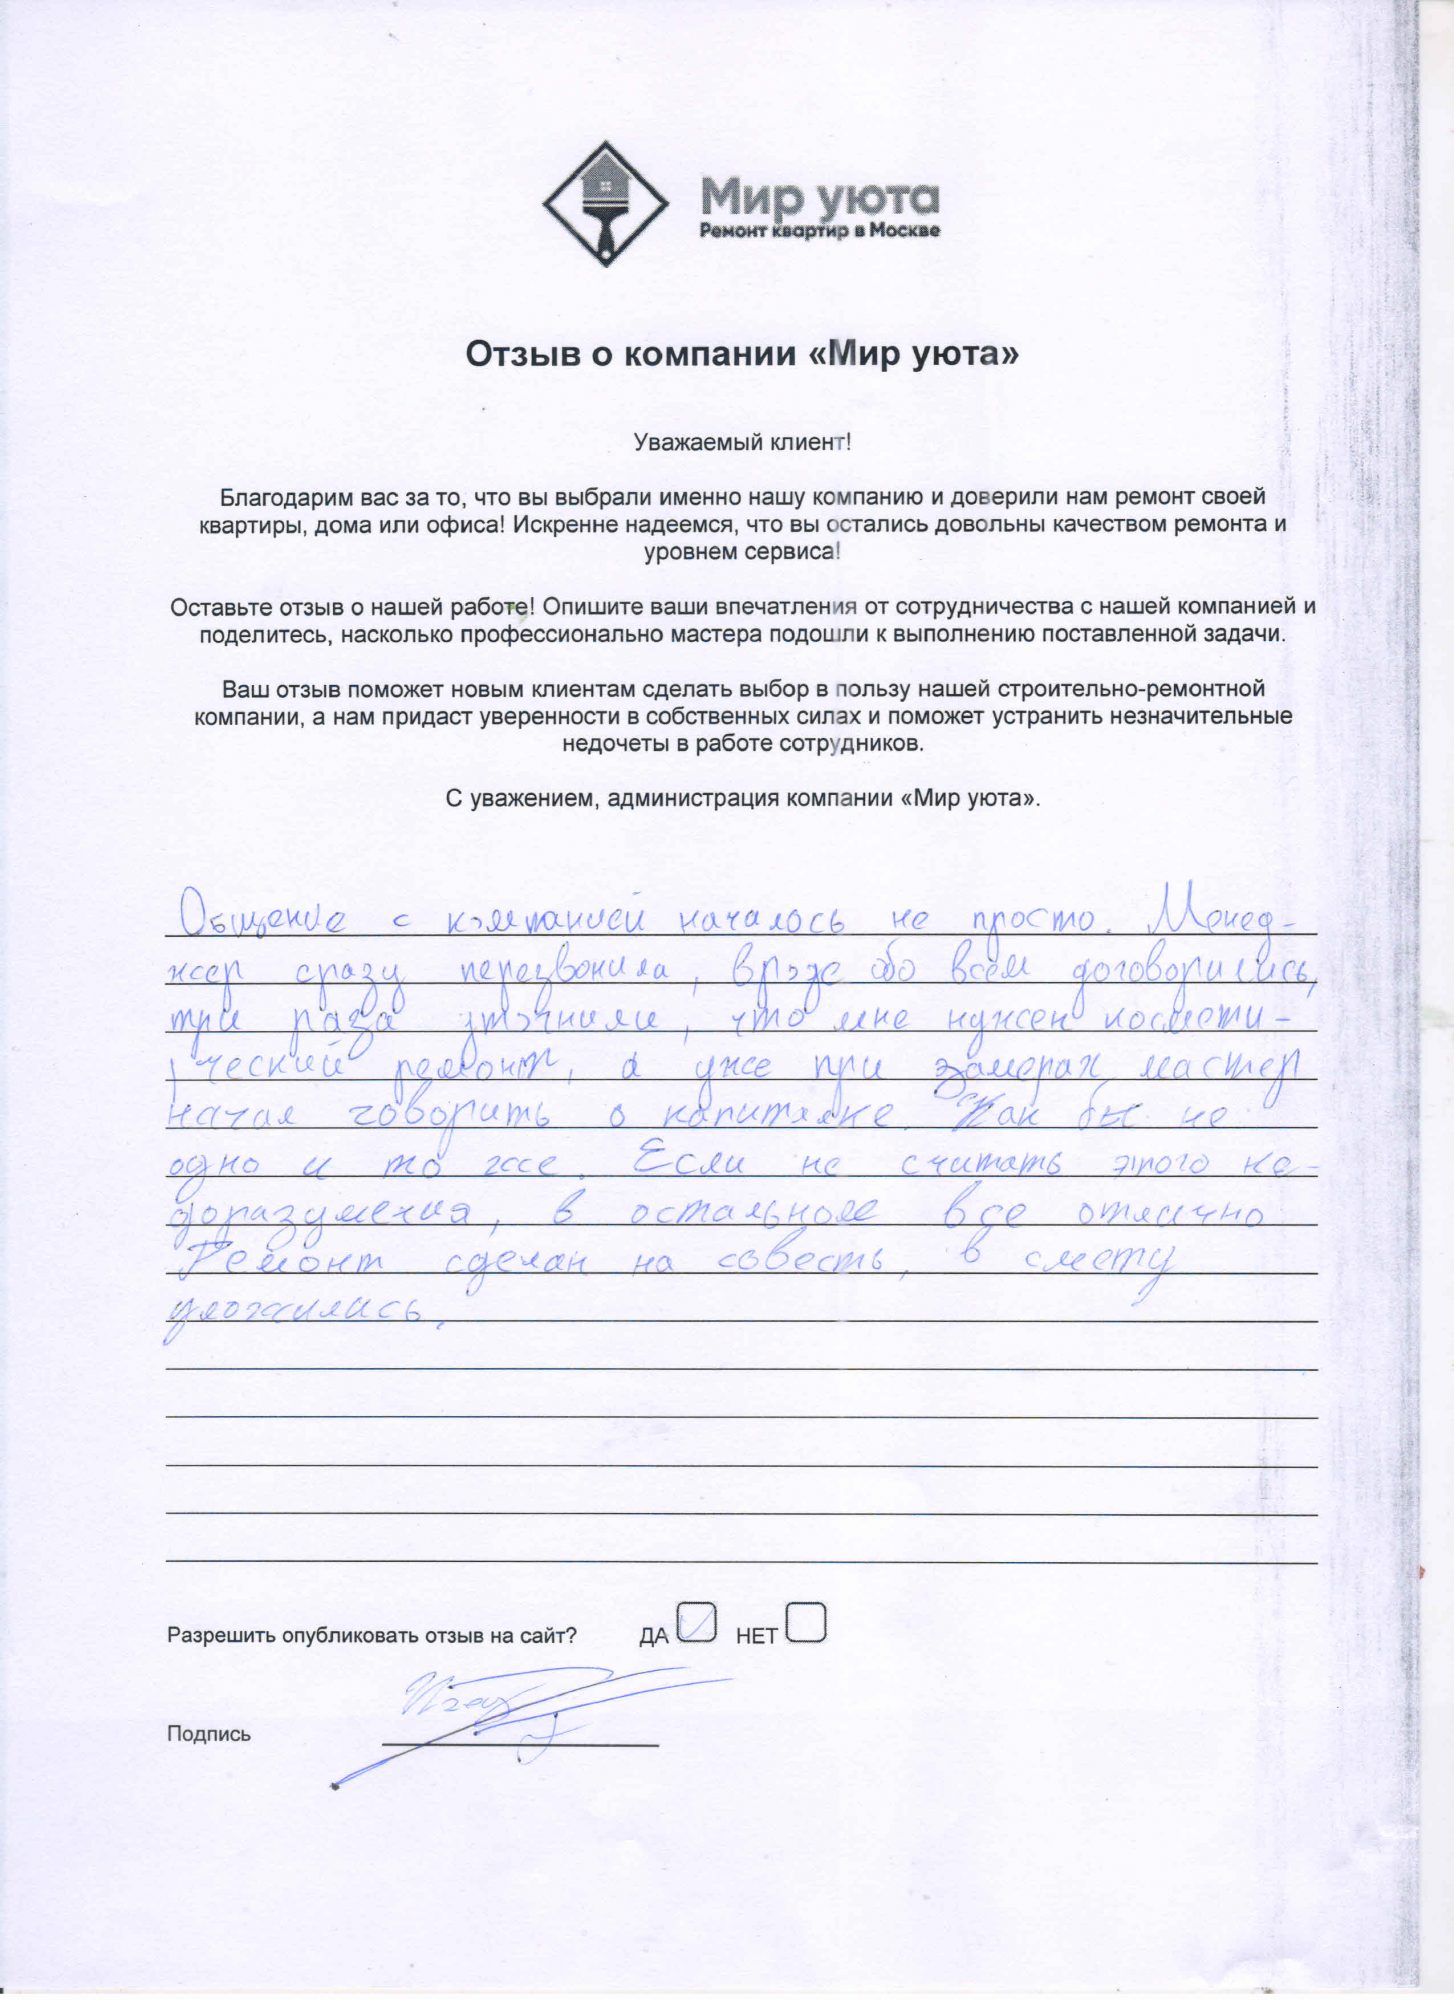 Мир уюта
Ремонт квартир в Москве
Отзыв о компании «Мир уюта»
Уважаемый клиент!
Благодарим вас за то, что вы выбрали именно нашу компанию и доверили нам ремонт своей
квартиры, дома или офиса! Искренне надеемся, что вы остались довольны качеством ремонта и
уровнем сервиса!
Оставьте отзыв о нашей работе! Опишите ваши впечатления от сотрудничества с нашей компанией и
поделитесь, насколько профессионально мастера подошли к выполнению поставленной задачи.
Ваш отзыв поможет новым клиентам сделать выбор в пользу нашей строительно-ремонтной
компании, а нам придаст уверенности в собственных силах и поможет устранить незначительные
недочеты в работе сотрудников.
С уважением, администрация компании «Мир уюта».
Общение с компанией началось не просто. Менед-
жер сразу перезвонила, вроде обо всем договорились,
три раза уточнили, что мне нужен космети-
ческий ремонт, а уже при замерах мастер
начал говорить о капиталке. Как бы не
одно и то же. Если не считать этого не-
доразумения, в остальном все отлично
Ремонт сделан на совесть, в смету
уложились.
Разрешить опубликовать отзыв на сайт? ДА НЕТ
Подпись